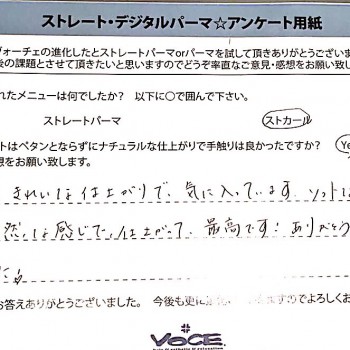 ストレート・デジタルパーマ☆アンケート用紙
ヴォーチェの進化したとストレートパーマorパーマを試して頂きありがとうございま
後の課題とさせて頂きたいと思いますのでどうぞ率直なご意見・感想をお願い致し
れたメニューは何でしたか? 以下に○で囲んで下さい。
ストレートパーマ ストカール
トはペタンとならずにナチュラルな仕上がりで手触りは良かったですか? Ye
想をお願い致します。
きれいな仕上がりで、気に入っています。ソフトな
然な感じで、仕上がって、最高です!ありがとう
お答えありがとうございました。 今後も更に ますのでよろしくお
VOCE